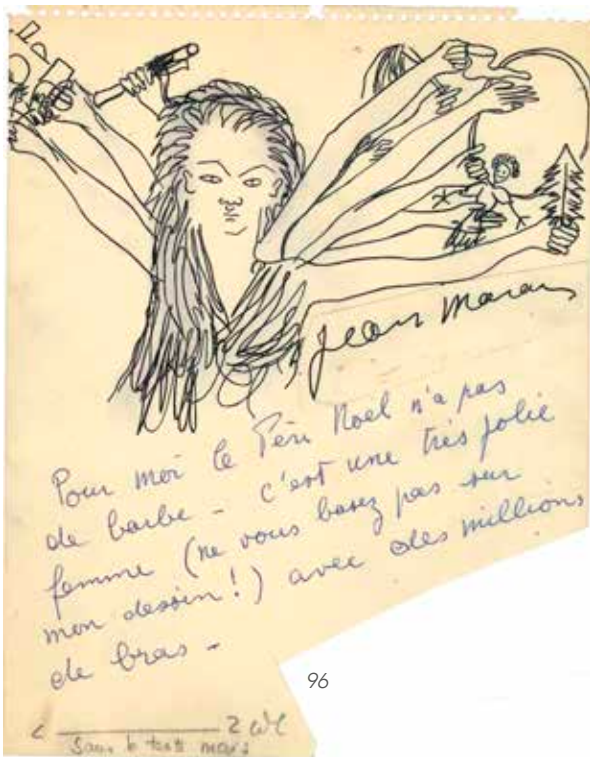 Jean Marais
Pour moi le Père Noel n'a pas
de barbe - c'est une très jolie
femme (ne vous basez pas sur
mon dessin!) avec des millions
de bras -
96
2 col
Sans le texte mais